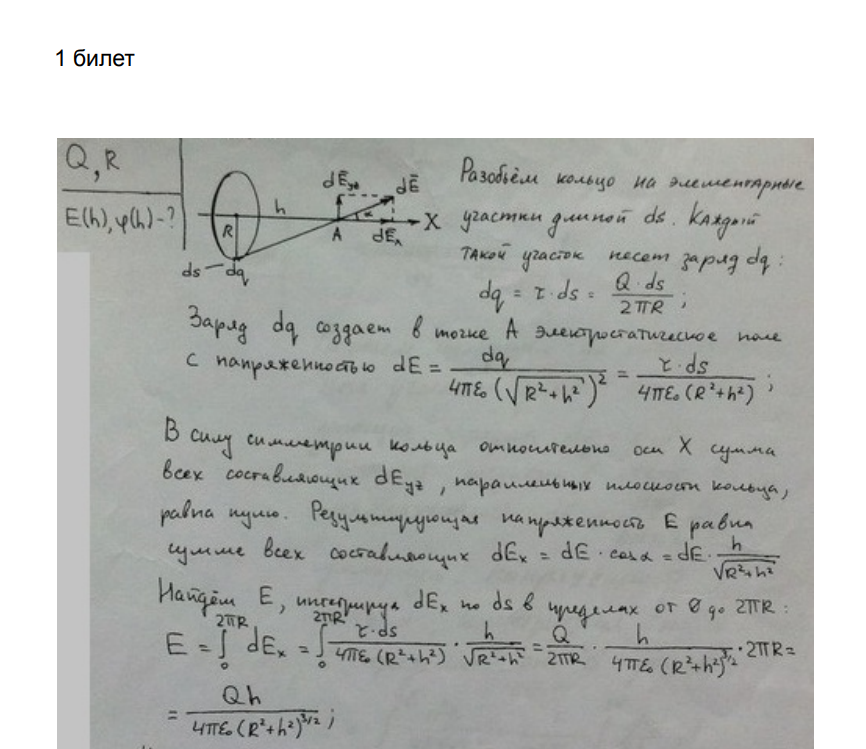 1 билет
Q, R
E(h), φ(h) - ?
R
h
A
α
dĒyz
dĒ
dĒx
X
ds — dq
Разобьём кольцо на элементарные
участки длиной ds. Каждый
такой участок несет заряд dq:
dq = τ·ds = Q·ds / 2πR ;
Заряд dq создает в точке A электростатическое поле
с напряженностью dE = dq / 4πε₀(√(R²+h²))² = τ·ds / 4πε₀(R²+h²) ;
В силу симметрии кольца относительно оси X сумма
всех составляющих dEyz, параллельных плоскости кольца,
равна нулю. Результирующая напряженность E равна
сумме всех составляющих dEx = dE·cosα = dE· h / √(R²+h²)
Найдём E, интегрируя dEx по ds в пределах от 0 до 2πR:
E = ∫₀^2πR dEx = ∫₀^2πR τ·ds / 4πε₀(R²+h²) · h / √(R²+h²) = Q / 2πR · h / 4πε₀(R²+h²)^3/2 · 2πR =
= Qh / 4πε₀(R²+h²)^3/2 ;